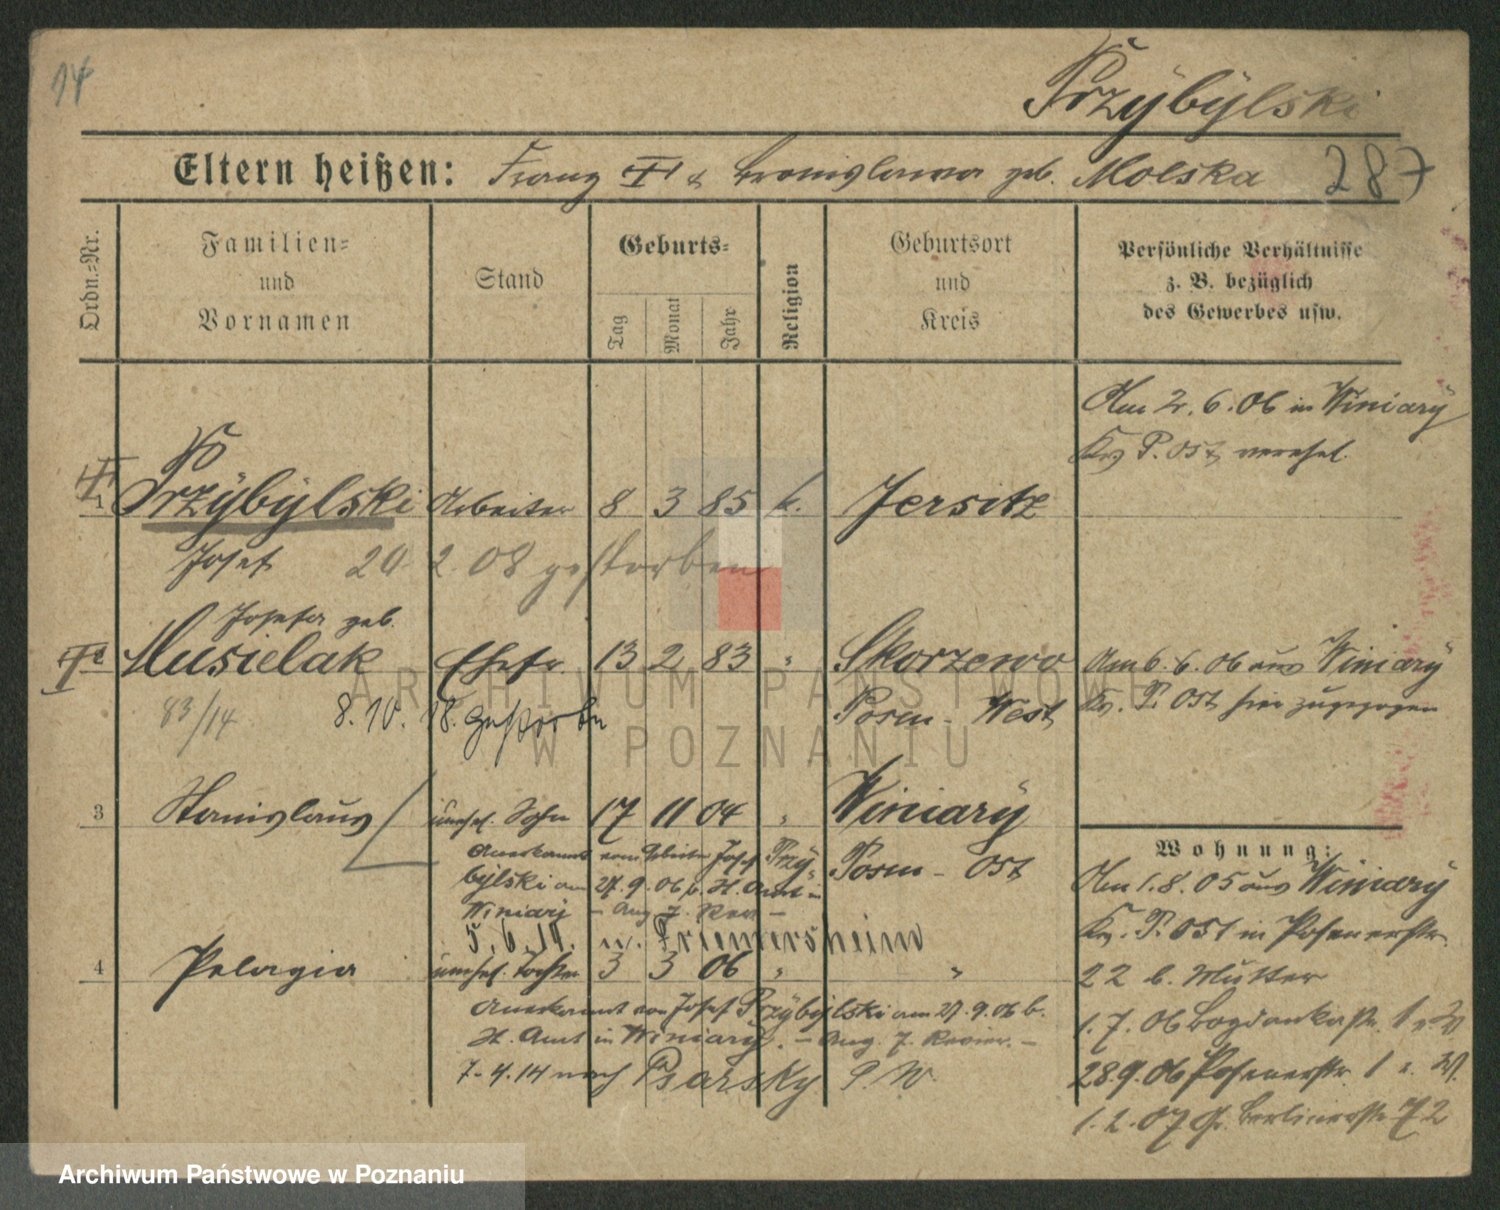 14
Przybylski
Eltern heißen: Franz † & Bronislawa geb. Molska 287
Ordn.=Nr.
Familien= und Vornamen
Stand
Geburts=
Tag Monat Jahr
Religion
Geburtsort und Kreis
Persönliche Verhältnisse z. B. bezüglich des Gewerbes usw.
Am 2. 6. 06 in Winiary
Krs P. Ost verehel.
1 Przybylski Arbeiter 8 3 85 k. Jersitz
Josef 20. 2. 08 gestorben
Josefa geb.
Musielak Ehefr. 13 2 83 " Skorzewo Am 6. 6. 06 aus Winiary
83/14 8. 10. 18. gestorben Posen - West Kr. P. Ost hier zugezogen
3 Stanislaus unehel. Sohn 17 11 04 " Winiary
Anerkannt vom Arbeiter Josef Przy- Posen - Ost
bylski am 27. 9. 06 b. St. Amt in
Winiary - Ang. 7. Rev. -
5. 6. 19. n. Friemersheim
4 Pelagia unehel. Tochter 3 3 06 " "
Anerkannt von Josef Przybylski am 27. 9. 06 b.
St. Amt in Winiary. - Ang. 7. Revier. -
7. 4. 14 nach Psarsky P. W.
Wohnung:
Am 1. 8. 05 aus Winiary
Kr. P. Ost in Posenerstr.
22 b. Mutter
1. 7. 06 Bogdankastr. 1
28. 9. 06 Posenerstr. 1
1. 2. 07 Gr. Berlinerstr. 72
ARCHIWUM PAŃSTWOWE
W POZNANIU
Archiwum Państwowe w Poznaniu